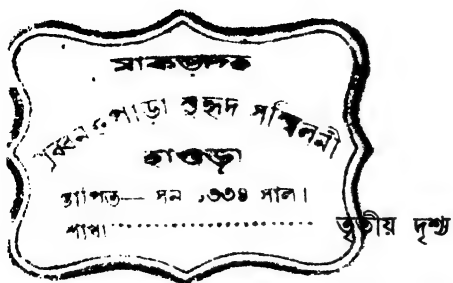 সুহৃদ সম্মিলনী
হাওড়া
স্থাপিত— সন ১৩৩৪ সাল।
শাখা
তৃতীয় দৃশ্য